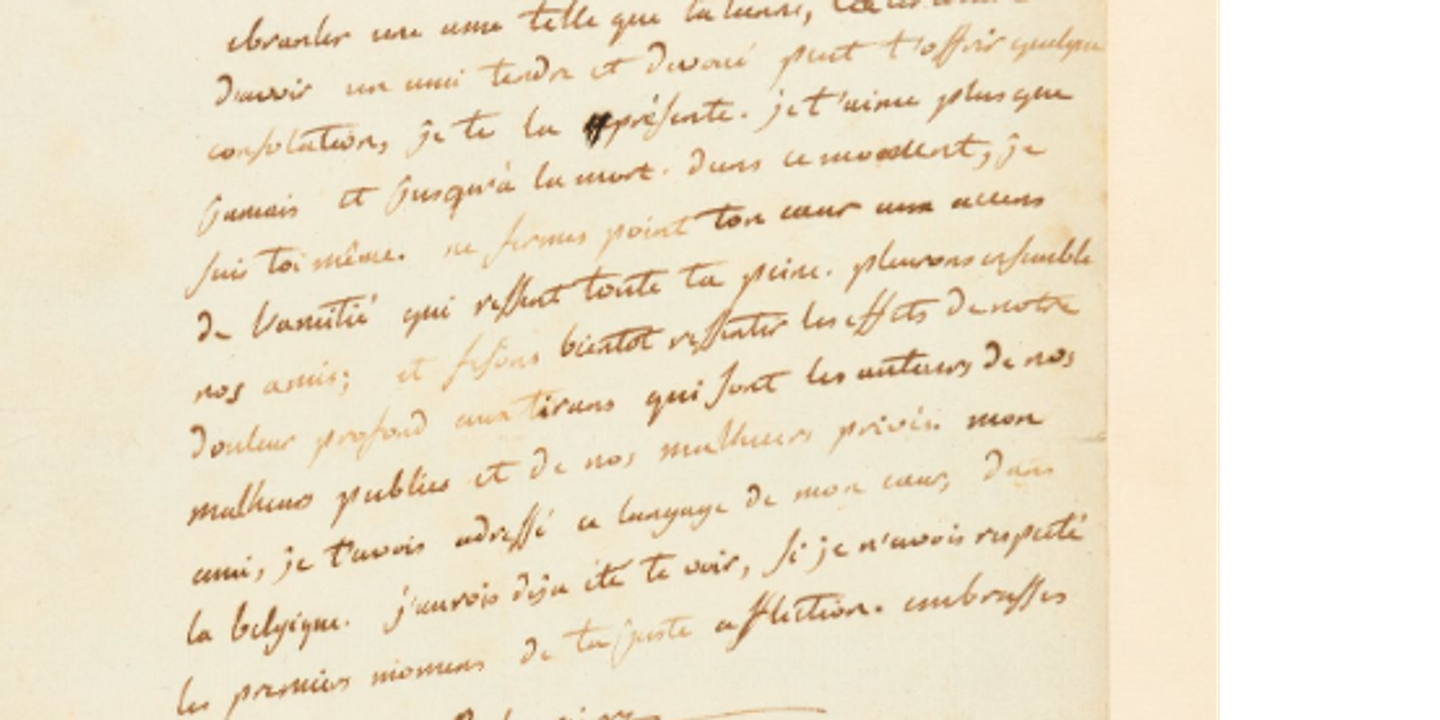 ebranler une ame telle que la tienne,
d'avoir un ami tendre et devoué peut t'offrir quelque
consolation, je te la présente. je t'aime plus que
jamais et jusqu'à la mort. dans ce moment, je
suis toi même. ne fermes point ton cœur aux accens
de l'amitié qui ressent toute ta peine. pleurons ensemble
nos amis; et fesons bientot ressentir les effets de notre
douleur profond aux tirans qui sont les auteurs de nos
malheurs publics et de nos malheurs privés. mon
ami, je t'avois adressé ce langage de mon cœur, dans
la belgique. j'aurois deja été te voir, si je n'avois respecté
les premiers momens de ta juste affliction. embrasses